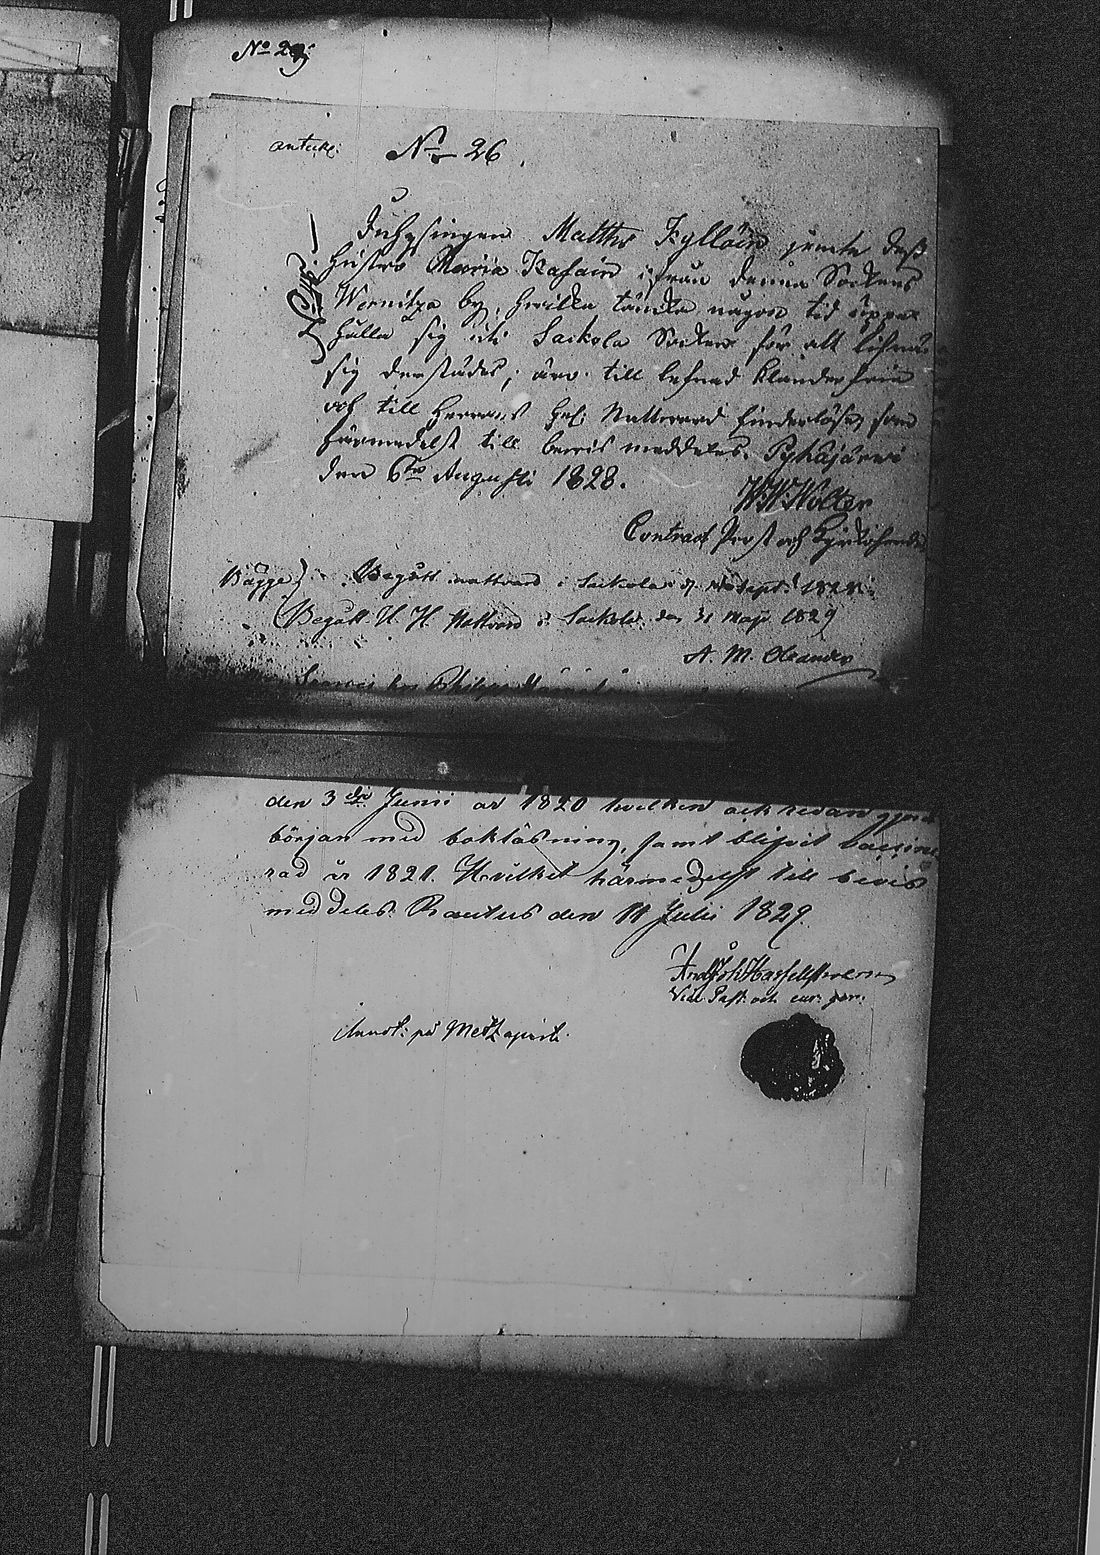 No 29
anteckn:
No 26.
Inhysingen Matths Kylläin jemte dess
hustru Maria Kasain ifrån denna Sockens
Wernitza by, hvilka tänka någon tid uppe-
hålla sig uti Sackola Socken för att lifnära
sig derstädes; äro till lefnad klanderfria
och till Herrans hel: Nattvard hinderlöse, som
härmedelst till bevis meddeles. Pyhäjärvi
den 6te Augusti 1828.
W. W. Wolter
Contract Prost och Kyrkoherde
Bägge
Begått nattvard i Sackola d. Sept: 1828.
Begått H. H. Nattvard i Sackola den 31 Maji 1829
A. M. Cleander
hos Philip
den 3die Junii år 1820 hvilken ock redan gjort
början med bokläsning, samt blifvit vaccine-
rad år 1821. Hvilket härmedelst till bevis
meddeles. Rautus den 11 Julii 1829.
Vice Past: och cur: ger:
på Metzapirtti